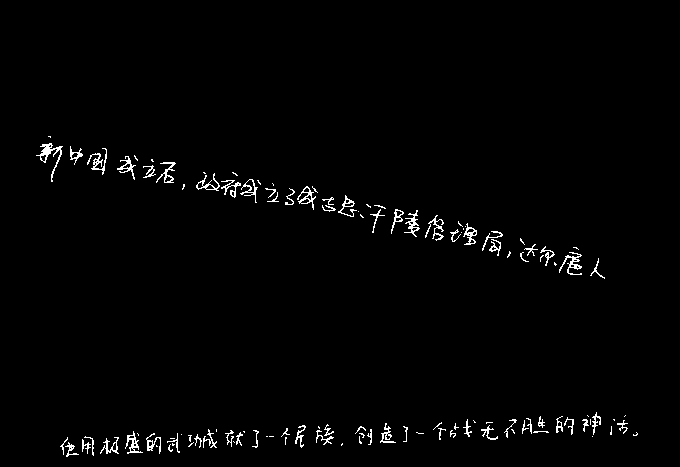 新中国成立后，政府成立了成吉思汗陵管理局，达尔扈人
他用极盛的武功成就了一个民族，创造了一个占战无不胜的神话。